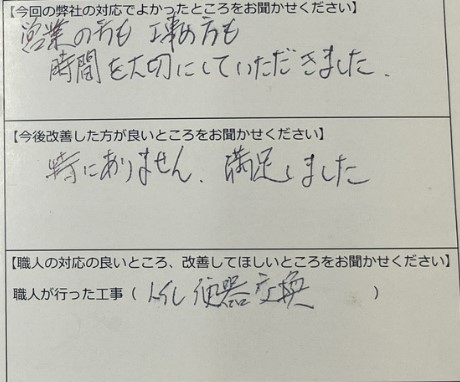 【今回の弊社の対応でよかったところをお聞かせください】
営業の方も 工事の方も
時間を大切にしていただきました.
【今後改善した方が良いところをお聞かせください】
特にありません、満足しました
【職人の対応の良いところ、改善してほしいところをお聞かせください】
職人が行った工事（ トイレ 便器 交換 ）